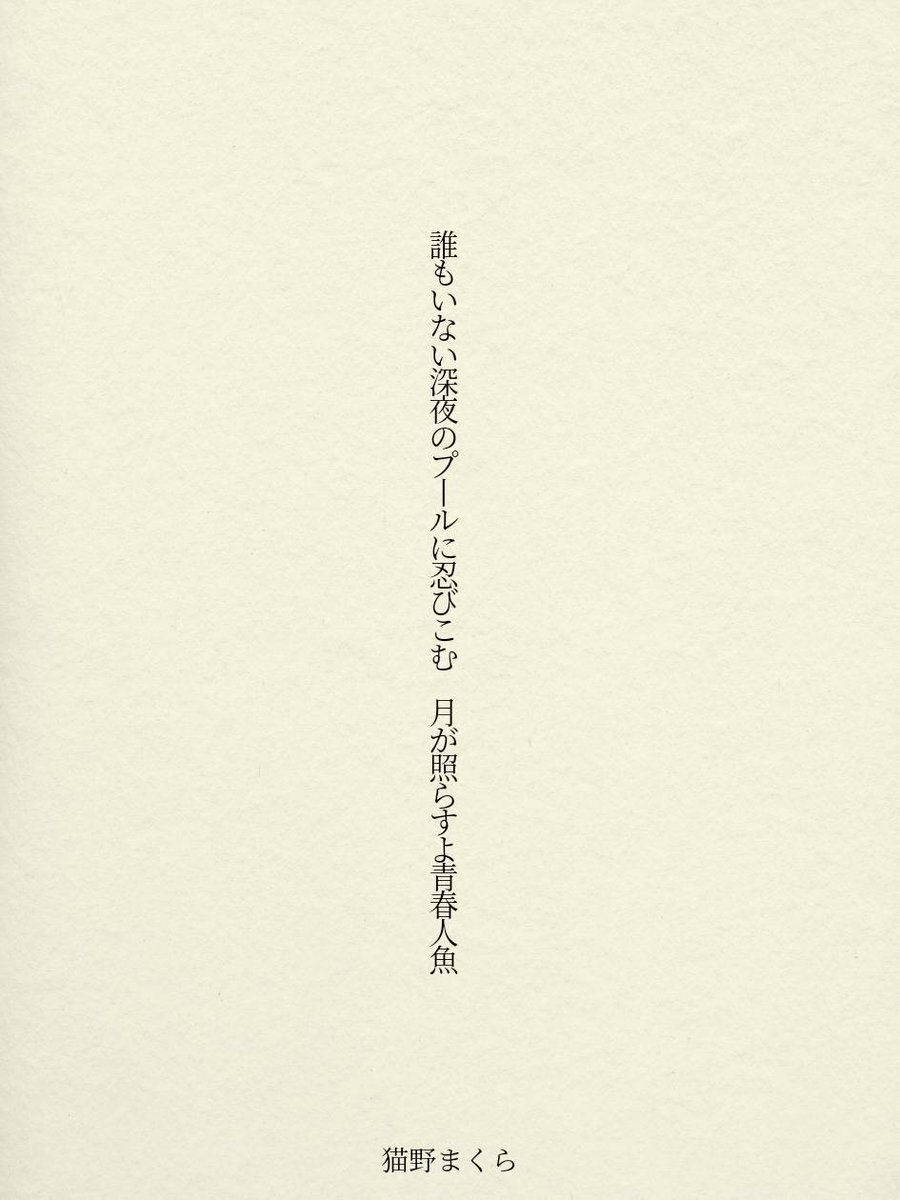 誰もいない深夜のプールに忍びこむ　月が照らすよ青春人魚
猫野まくら